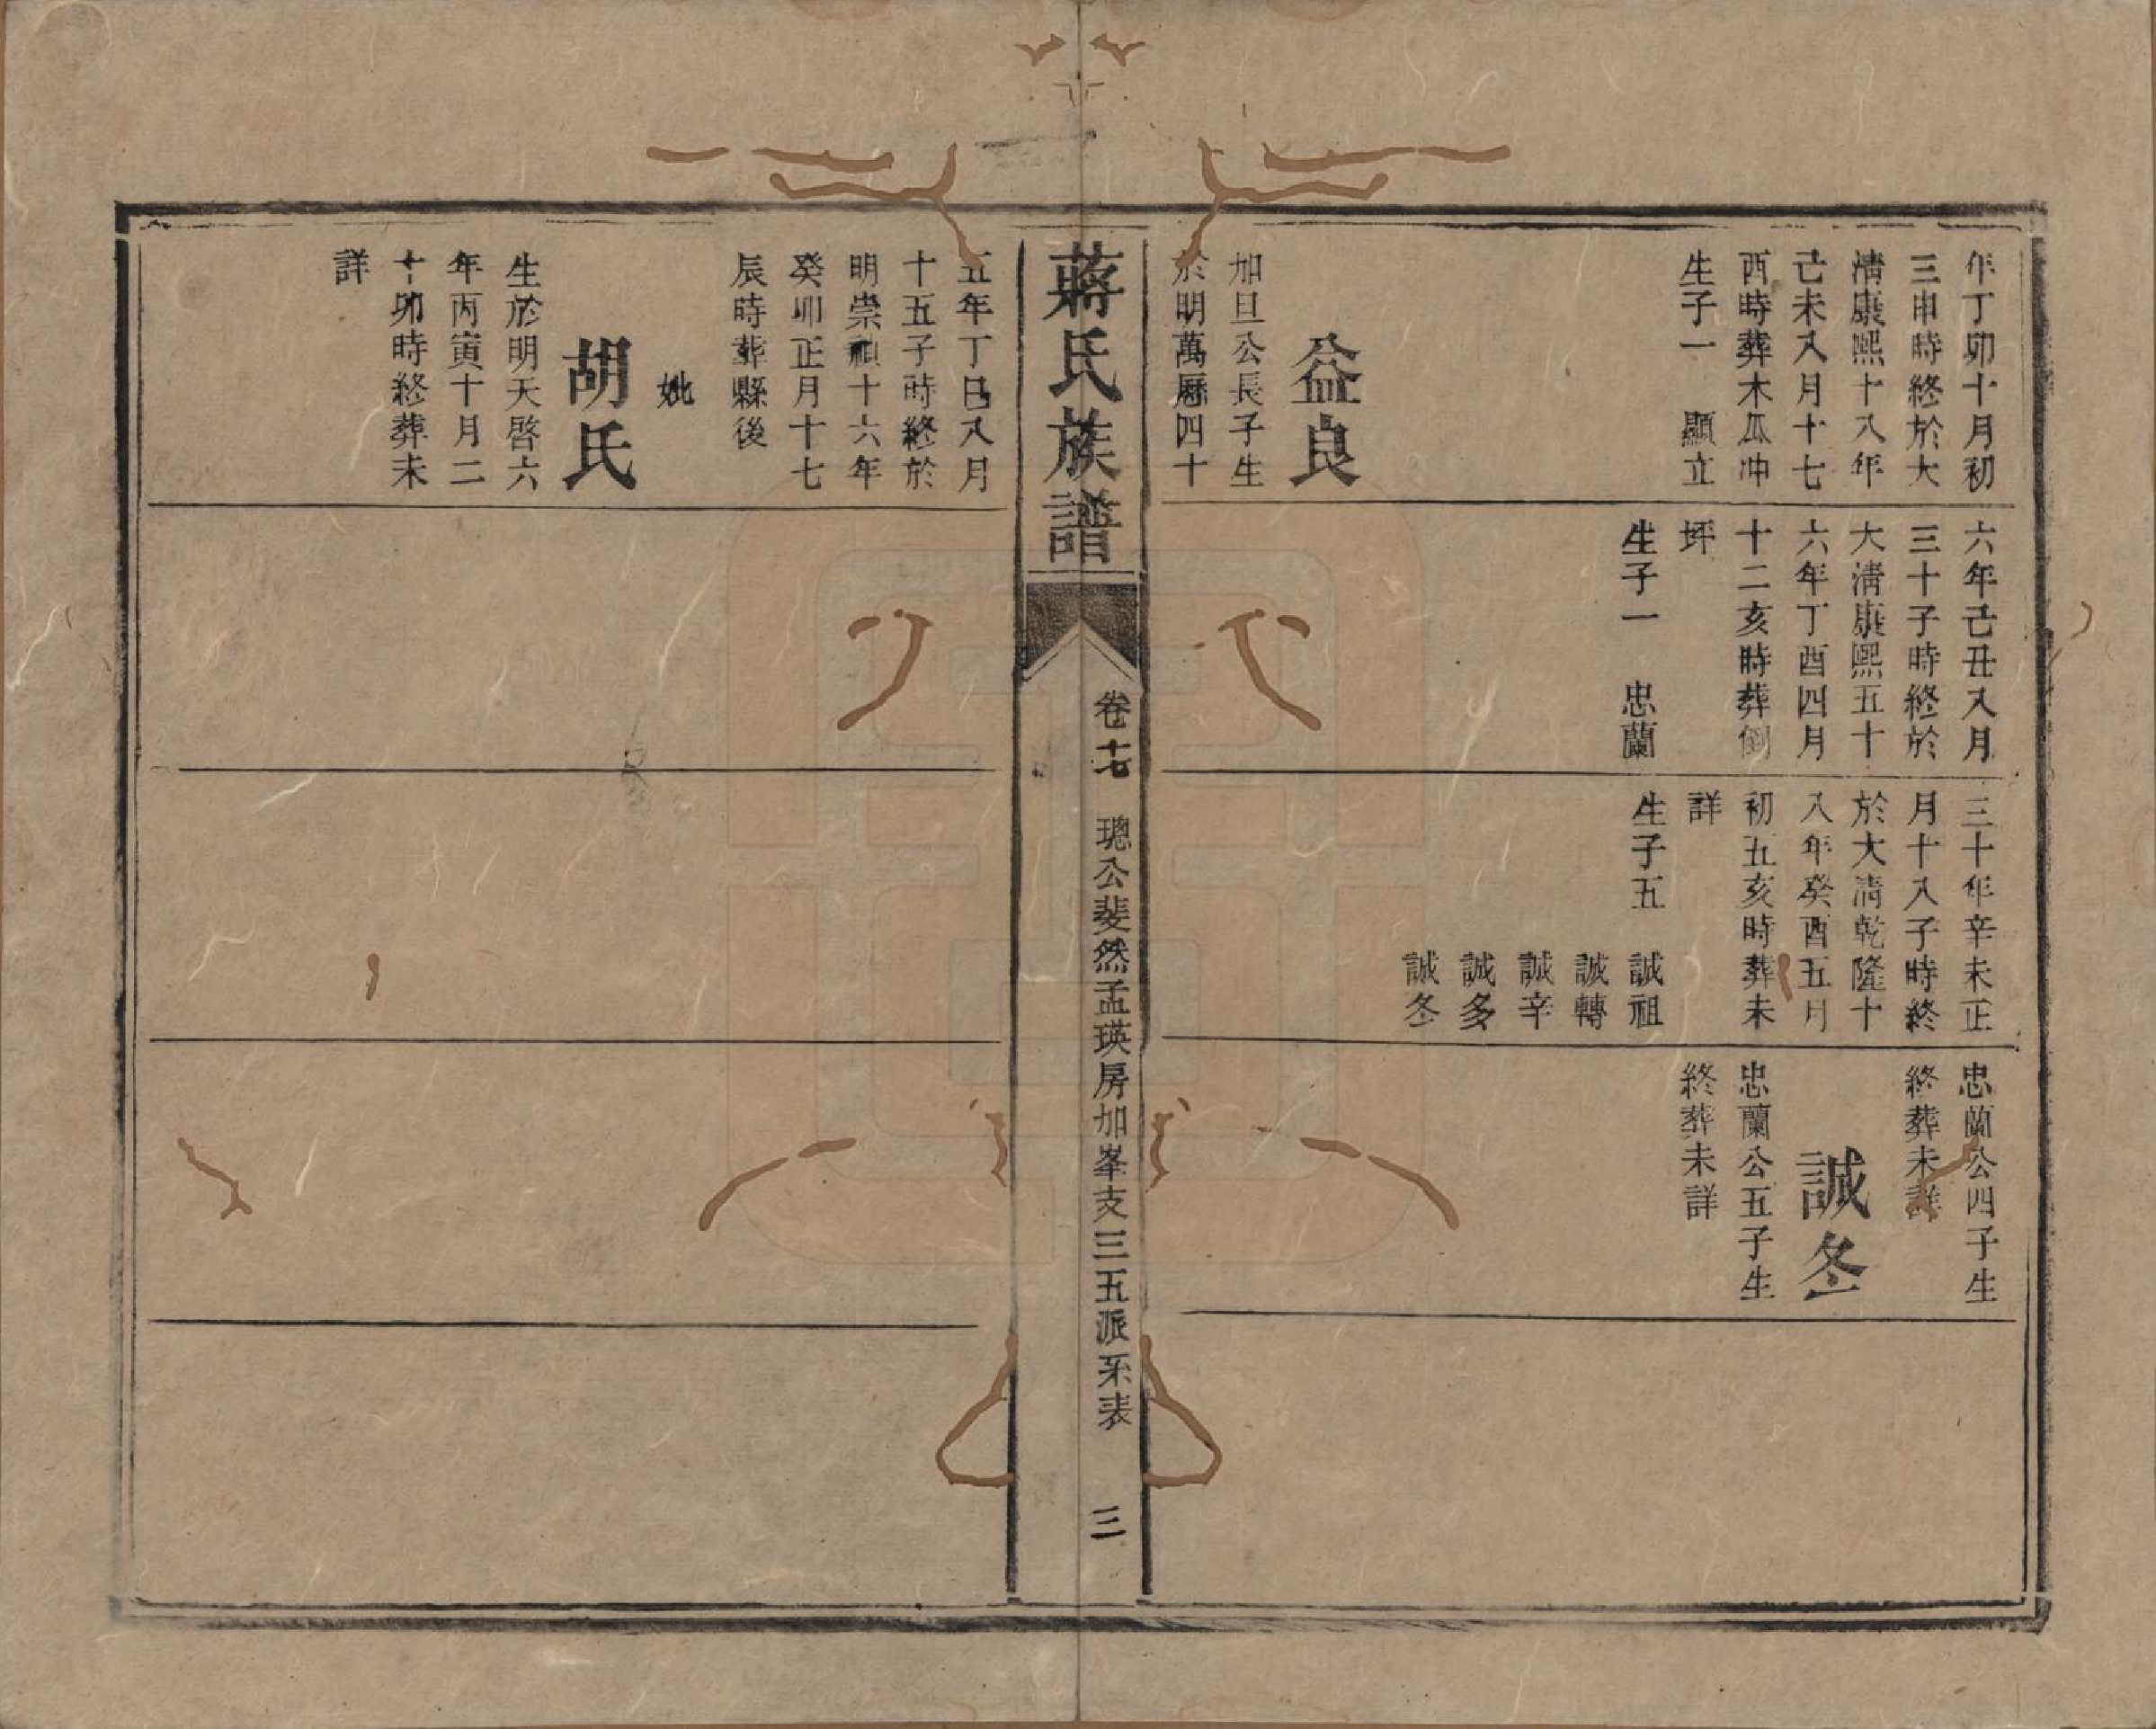 年丁卯十月初
三申時終於大
清康熙十八年
己未八月十七
酉時葬木瓜冲
生子一　顯立
益良
加旦公長子生
於明萬曆四十
六年己丑八月
三十子時終於
大清康熙五十
六年丁酉四月
十二亥時葬倒
坪
生子一　忠蘭
三十年辛未正
月十八子時終
於大清乾隆十
八年癸酉五月
初五亥時葬未
詳
生子五　誠祖
誠轉
誠辛
誠多
誠冬
忠蘭公四子生
終葬未詳
誠冬
忠蘭公五子生
終葬未詳
蔣氏族譜
卷十七　璁公斐然孟瑛房加峯支三五派系表　三
五年丁巳八月
十五子時終於
明崇禎十六年
癸卯正月十七
辰時葬縣後
妣
胡氏
生於明天啓六
年丙寅十月二
十卯時終葬未
詳